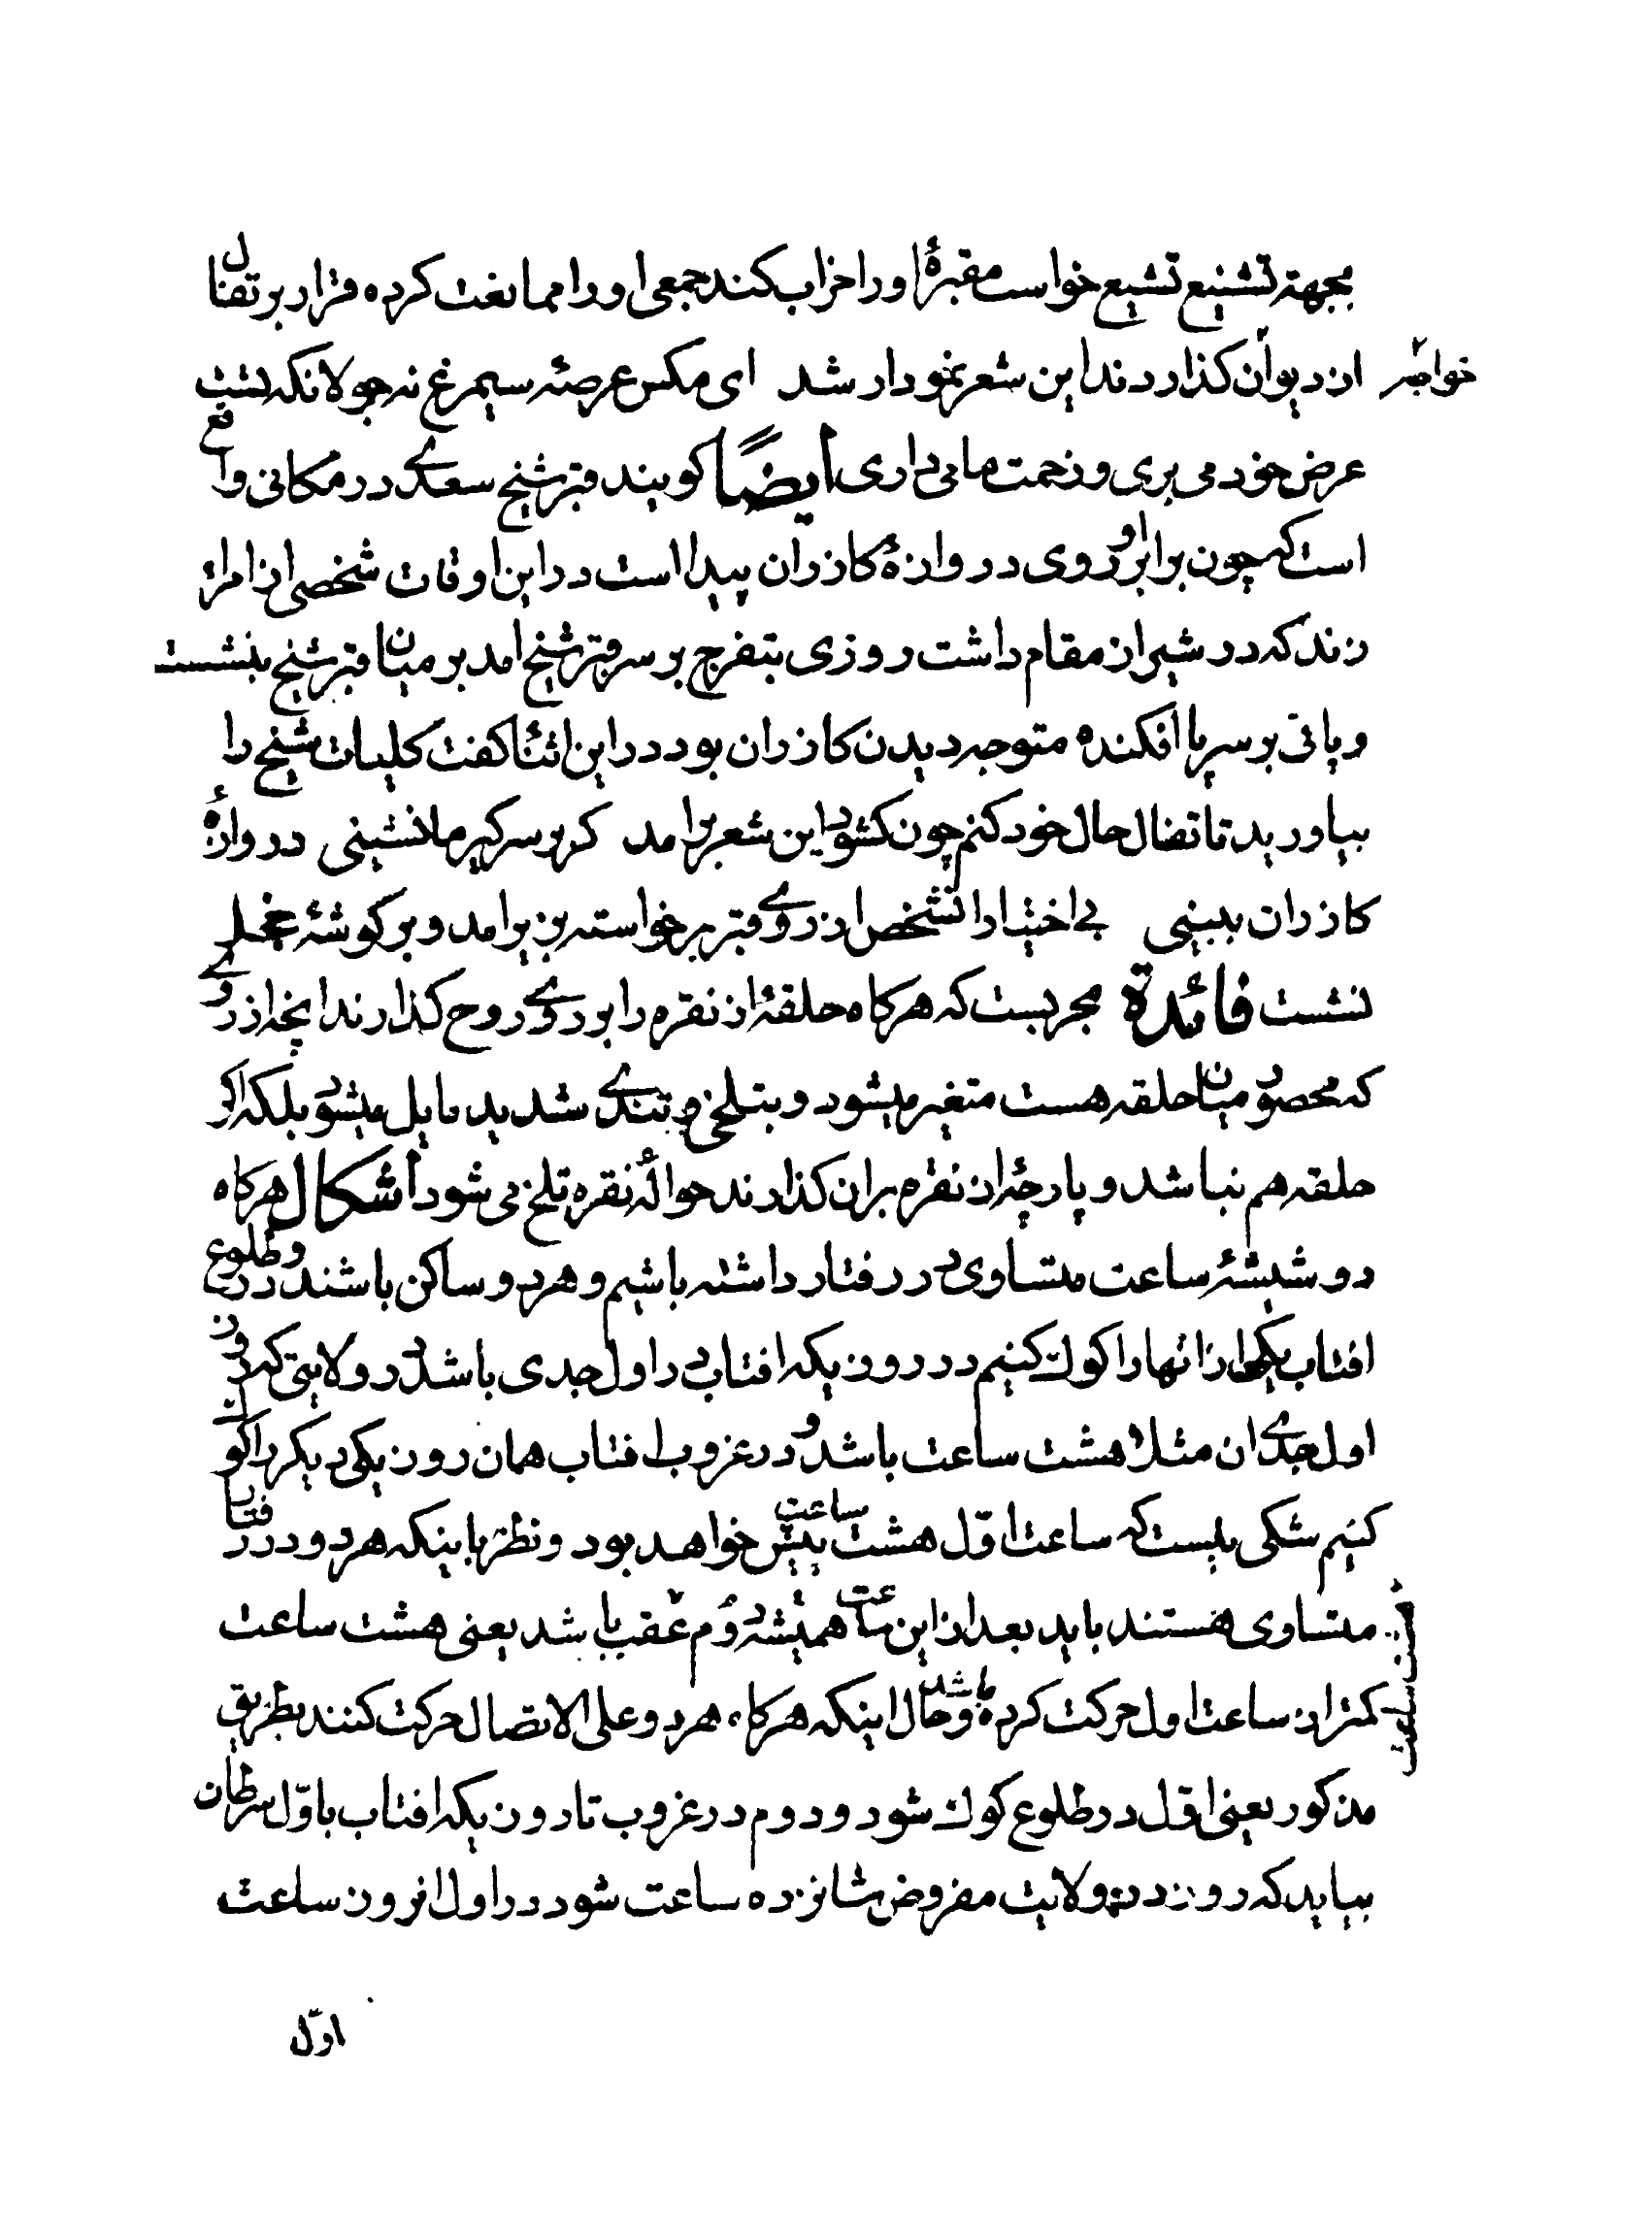 بجهتهٔ تشنیع تشیع خواست مقبرهٔ او را خراب کند جمعی او را ممانعت کرده قرار بر تفأل
از دیوان خواجه گذاردند این شعر نمودار شد ای مکس عرصهٔ سیمرغ نه جولانکه تست
عرض خود می بری و زحمت ما می داری ایضاً کویند قبر شیخ سعدی در مکانی واقع
است که چون برابر او روی دروازهٔ کازران پیدا است در این اوقات شخصی از امراء
زند که در شیراز مقام داشت روزی بتفرج بر سر قبر شیخ امد بر میان قبر شیخ بنشست
و پائی بر سر پا افکنده متوجه دیدن کازران بود در این اثنا کفت کلیات شیخ را
بیاورید تا تفال حال خود کنم چون کشود این شعر برامد که بر سر کیر ما نشینی دروازهٔ
کازران ببینی بی اختیار انشخص از روی قبر برخواسته بزیر امد و بر کوشهٔ
نشست فائدة مجربست که هرکاه حلقهٔ از نقره را بر روی روح کذارند انچه از روی
که محصور میان حلقه هست متغیر میشود و بتلخی و تندی شدید مایل میشود بلکه اکر
حلقه هم نباشد و پارچهٔ از نقره بران کذارند حوالهٔ نقره تلخ می شود اشکال هرکاه
دو شیشهٔ ساعت متساوی در رفتار داشته باشیم و هر دو ساکن باشند و در طلوع
افتاب یکی از انها را کوک کنیم در روزیکه افتاب در اول جدی باشد در ولایتی که روز
اول جدی ان مثلا هشت ساعت باشد و در غروب افتاب همان روز یکی دیکر را کوک
کنیم شکی نیست که ساعت اول هشت ساعت پیش خواهد بود و نظر باینکه هر دو در رفتار
متساوی هستند باید بعد از این ساعت همیشه دوم عقب باشد یعنی هشت ساعت
کمتر از ساعت اول حرکت کرده باشد و حال اینکه هرکاه هر دو علی الاتصال حرکت کنند بطریق
مذکور یعنی اول در طلوع کوک شود و دوم در غروب تا روزیکه افتاب باول سرطان
بیاید که روز در ولایت مفروض شانزده ساعت شود در اول انروز ساعت
اوّل